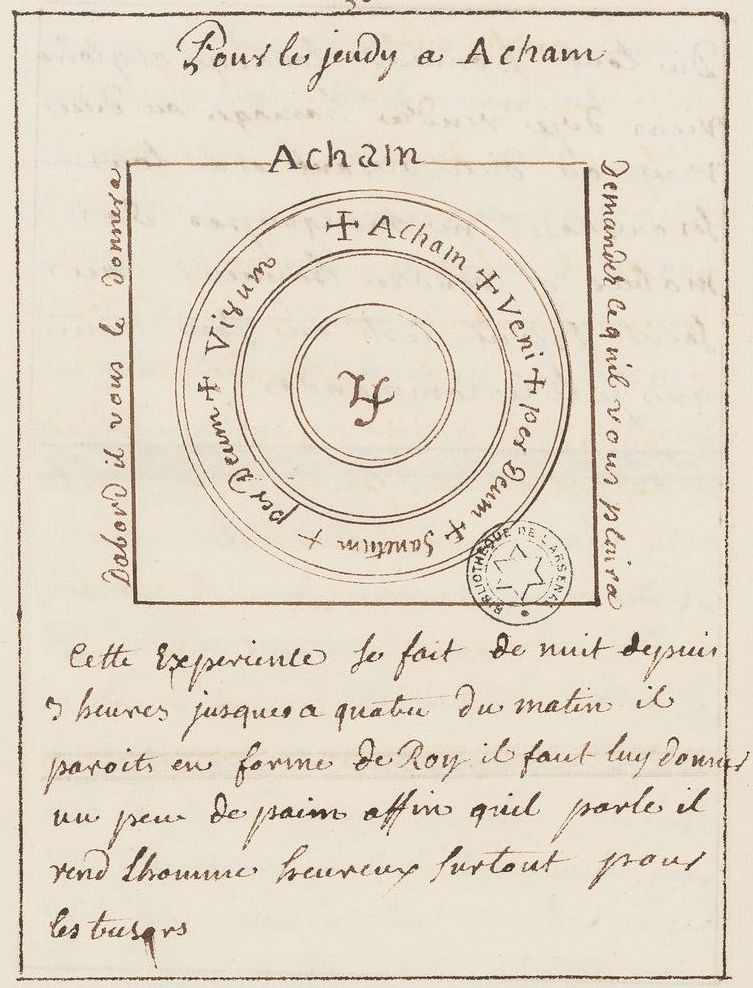 Pour le jeudy a Acham
Acham
Dabord il vous le donnera
demander ce qu'il vous plaira
✠ Acham ✠ Veni ✠ per Deum ✠ Sanctum ✠ per Deum ✠ Visum
♃
BIBLIOTHEQUE DE L'ARSENAL
Cette Experience se fait de nuit depuis
3 heures jusques a quatre du matin il
paroit en forme de Roy il faut luy donner
un peu de paim affin qu'il parle il
rend L'homme heureux surtout pour
les